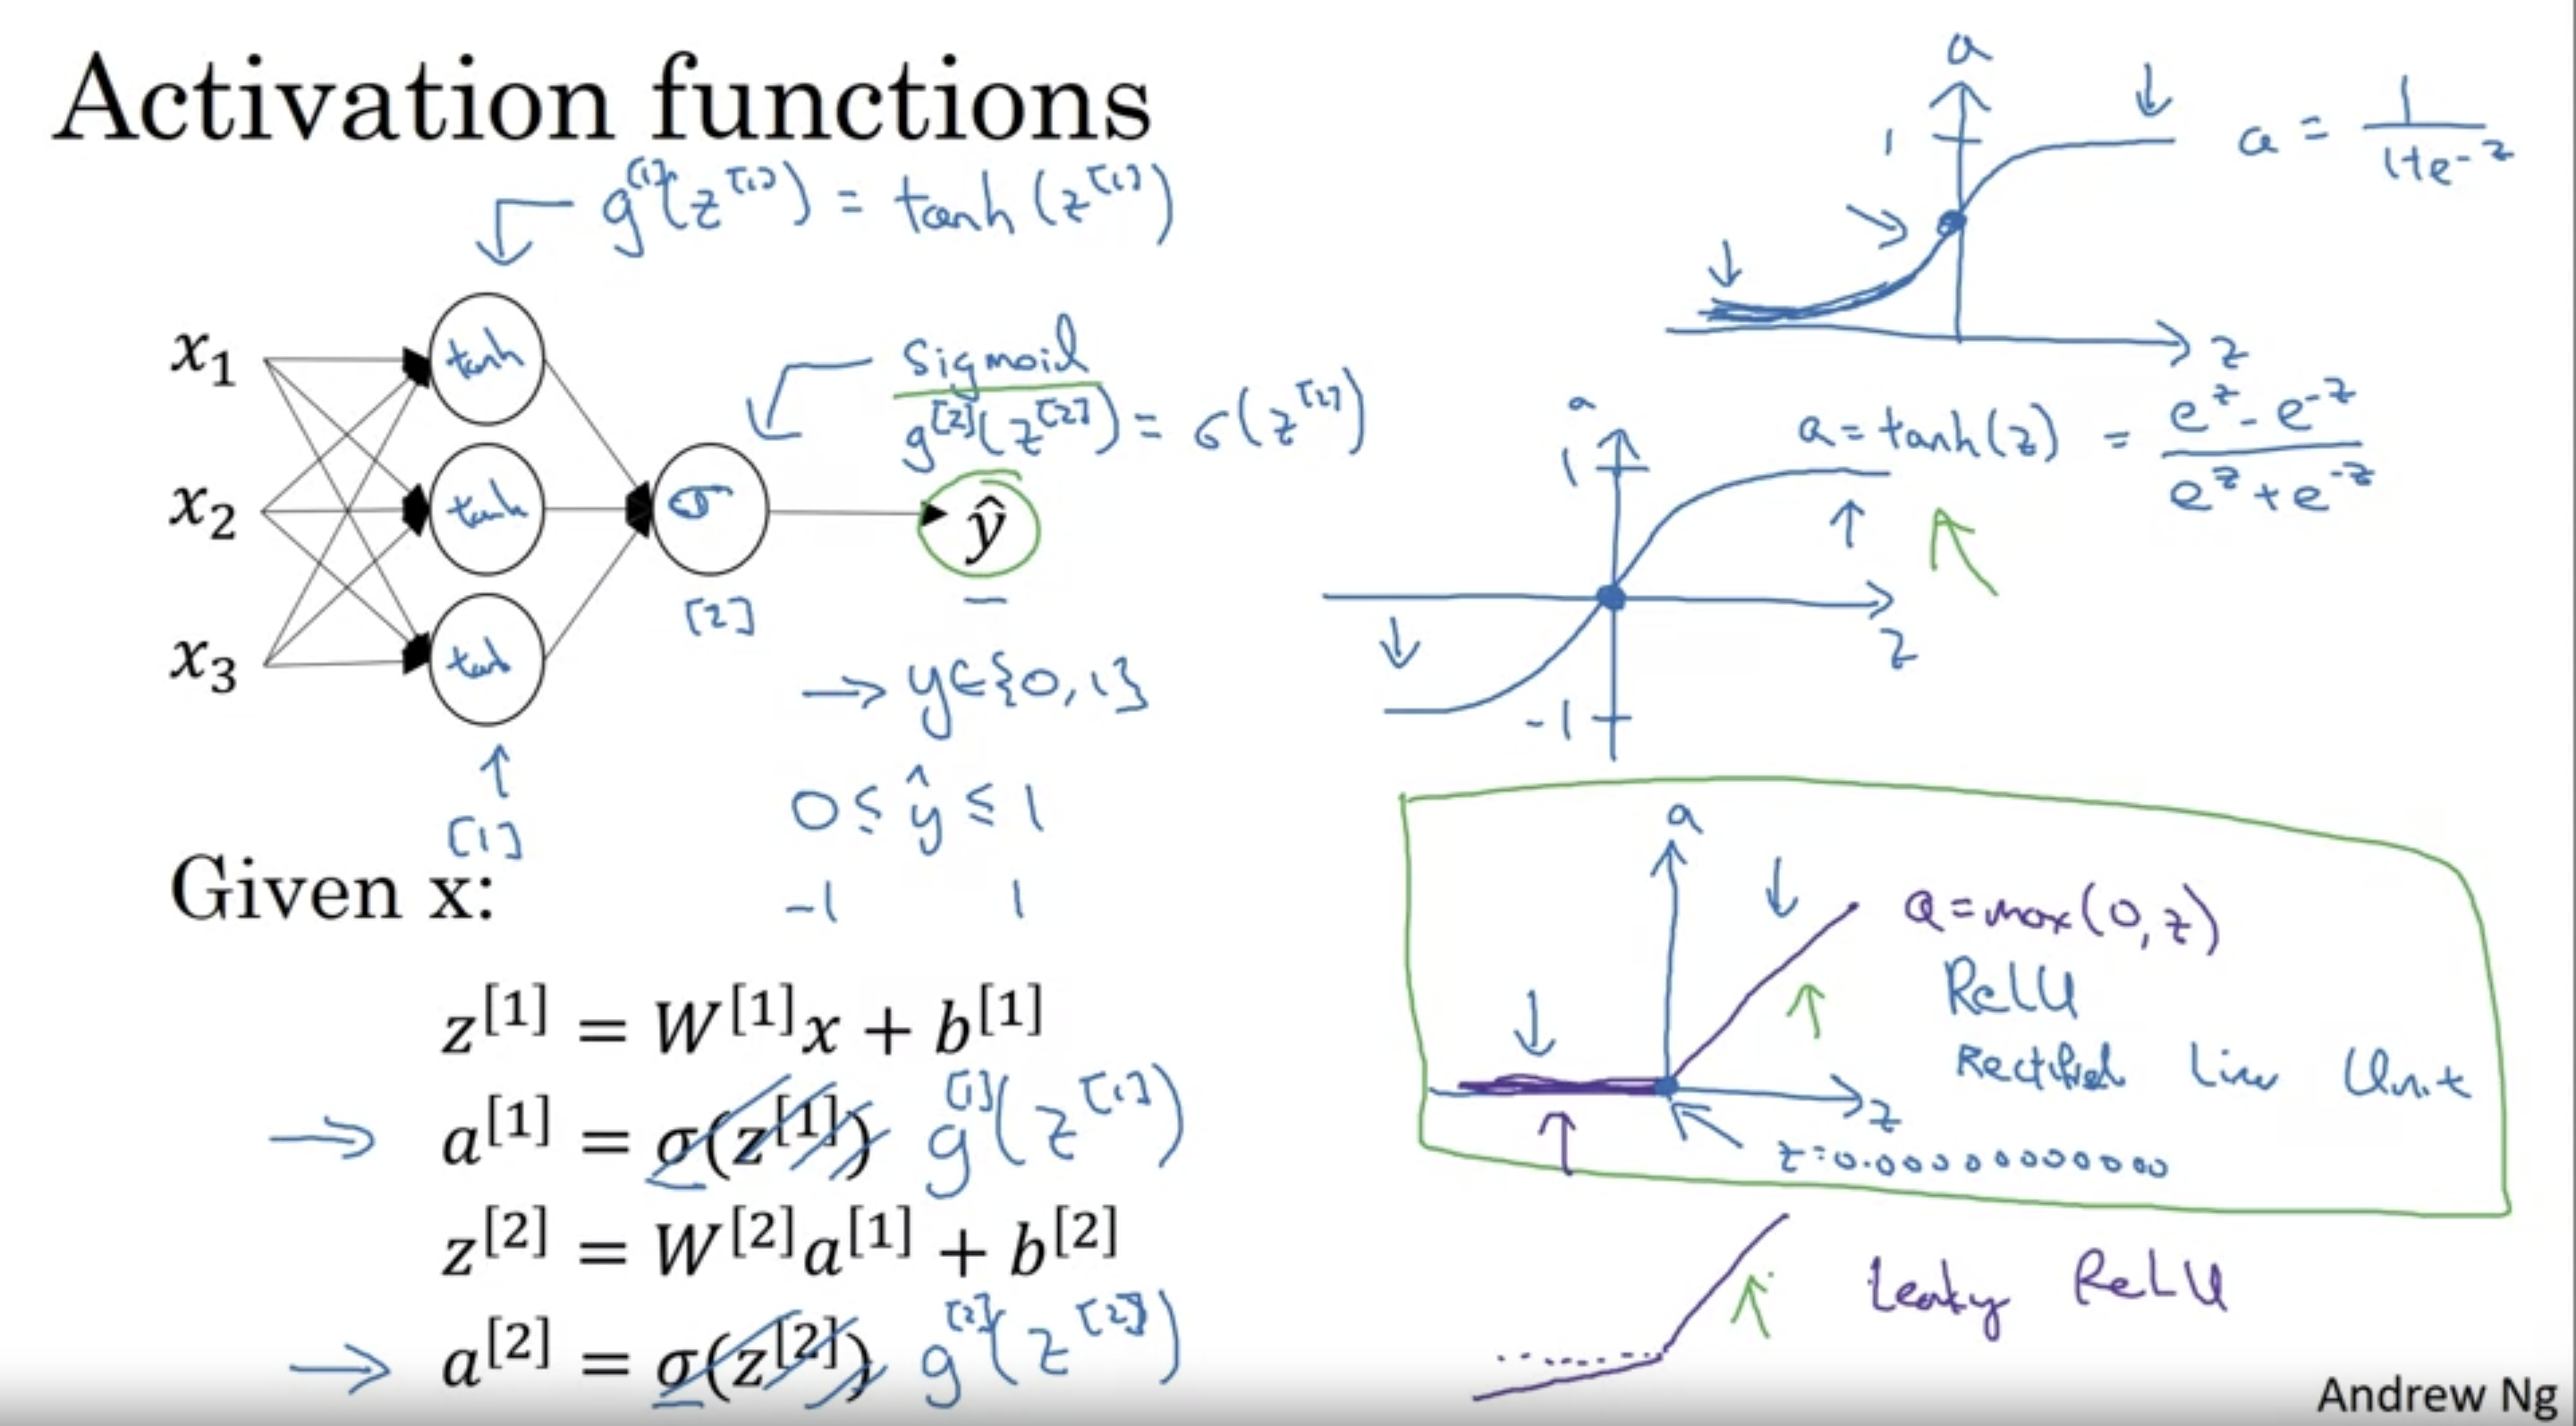 Activation functions
g^[1](z^[1]) = tanh(z^[1])
x₁
x₂
x₃
tanh
tanh
tanh
[1]
σ
[2]
Sigmoid
g^[2](z^[2]) = σ(z^[2])
ŷ
→ y∈{0,1}
0 ≤ ŷ ≤ 1
-1 1
Given x:
z^[1] = W^[1]x + b^[1]
→ a^[1] = σ(z^[1]) g^[1](z^[1])
z^[2] = W^[2]a^[1] + b^[2]
→ a^[2] = σ(z^[2]) g^[2](z^[2])
a
1
z
a = 1/(1+e^-z)
a
1
-1
z
a = tanh(z) = (e^z - e^-z)/(e^z + e^-z)
a
z
a = max(0,z)
ReLU
Rectified Linear Unit
z=0.00000000000
Leaky ReLU
Andrew Ng